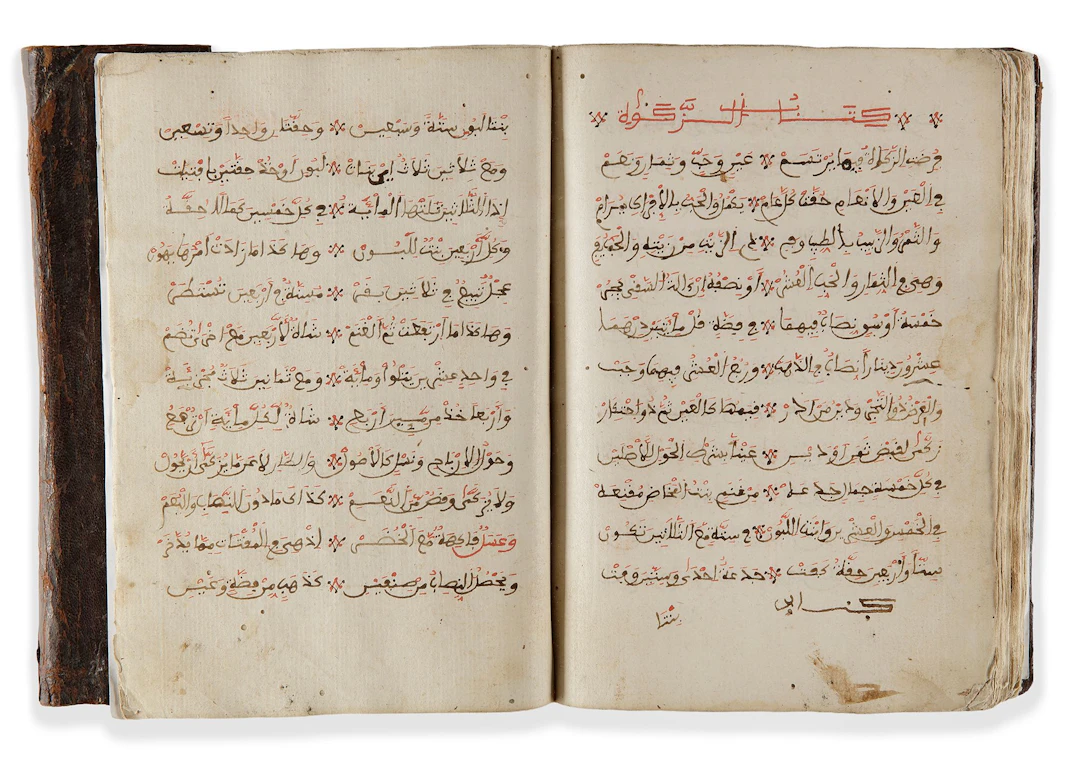 كتاب الزكواة
فرضت الزكاة فيما يرتسم عين وحب وثمار ونعم
في العين والانعام حقت كل عام يكمل والحب بالافراك يرام
والتمر والزبيب بالطيب وفي ذي الزيت من زيته والحب يفي
وهي في الثمار والحب العشر او نصفه ان الة السقي يجر
خمسة اوسق نصاب فيهما في فضة قل مائتين درهما
عشرون دينارا نصاب في الذهب وربع العشر فيهما وجبت
والعرض ذو التجر ودين من ادار قيمتها كالعين ثم ذو احتكار
زكى لقبض ثمن او دين عينا بشرط الحول للاصلين
في كل خمسة جمال جذعة من غنم بنت المخاض مقنعة
في الخمس والعشرين وابنة اللبون في ستة مع الثلاثين تكون
ستا واربعين حقة كفت جذعة احدى وستين وفت
بنتا
بنتا لبون ستة وسبعين وحقتان واحدا وتسعين
ومع ثلاثين ثلاث اي بنات لبون او خذ حقتين بافتيات
اذا الثلاثين تلتها المائة في كل خمسين كمالا حقة
وكل اربعين بنت للبون وهاكذا ما زادت امرها يهون
عجل تبيع في ثلاثين بقر مسنة في اربعين تستطر
وهاكذا ما ارتفعت ثم الغنم شاة لاربعين مع اخرى تضم
في واحد عشرين يتلوا ومائة ومع ثمانين ثلاث مجزئة
واربعا خذ من مئين اربع شاة لكل مائة ان ترفع
وحول الارباح ونسل كالاصول والطار لا عما يزكى ان يحول
ولا يزكى وقص من النعم كذاك ما دون النصاب وليعم
وعسل فاكهة مع الخضر اذ هي في المقتات مما يدخر
ويحصل النصاب من صنفين كذهب من فضة وعين